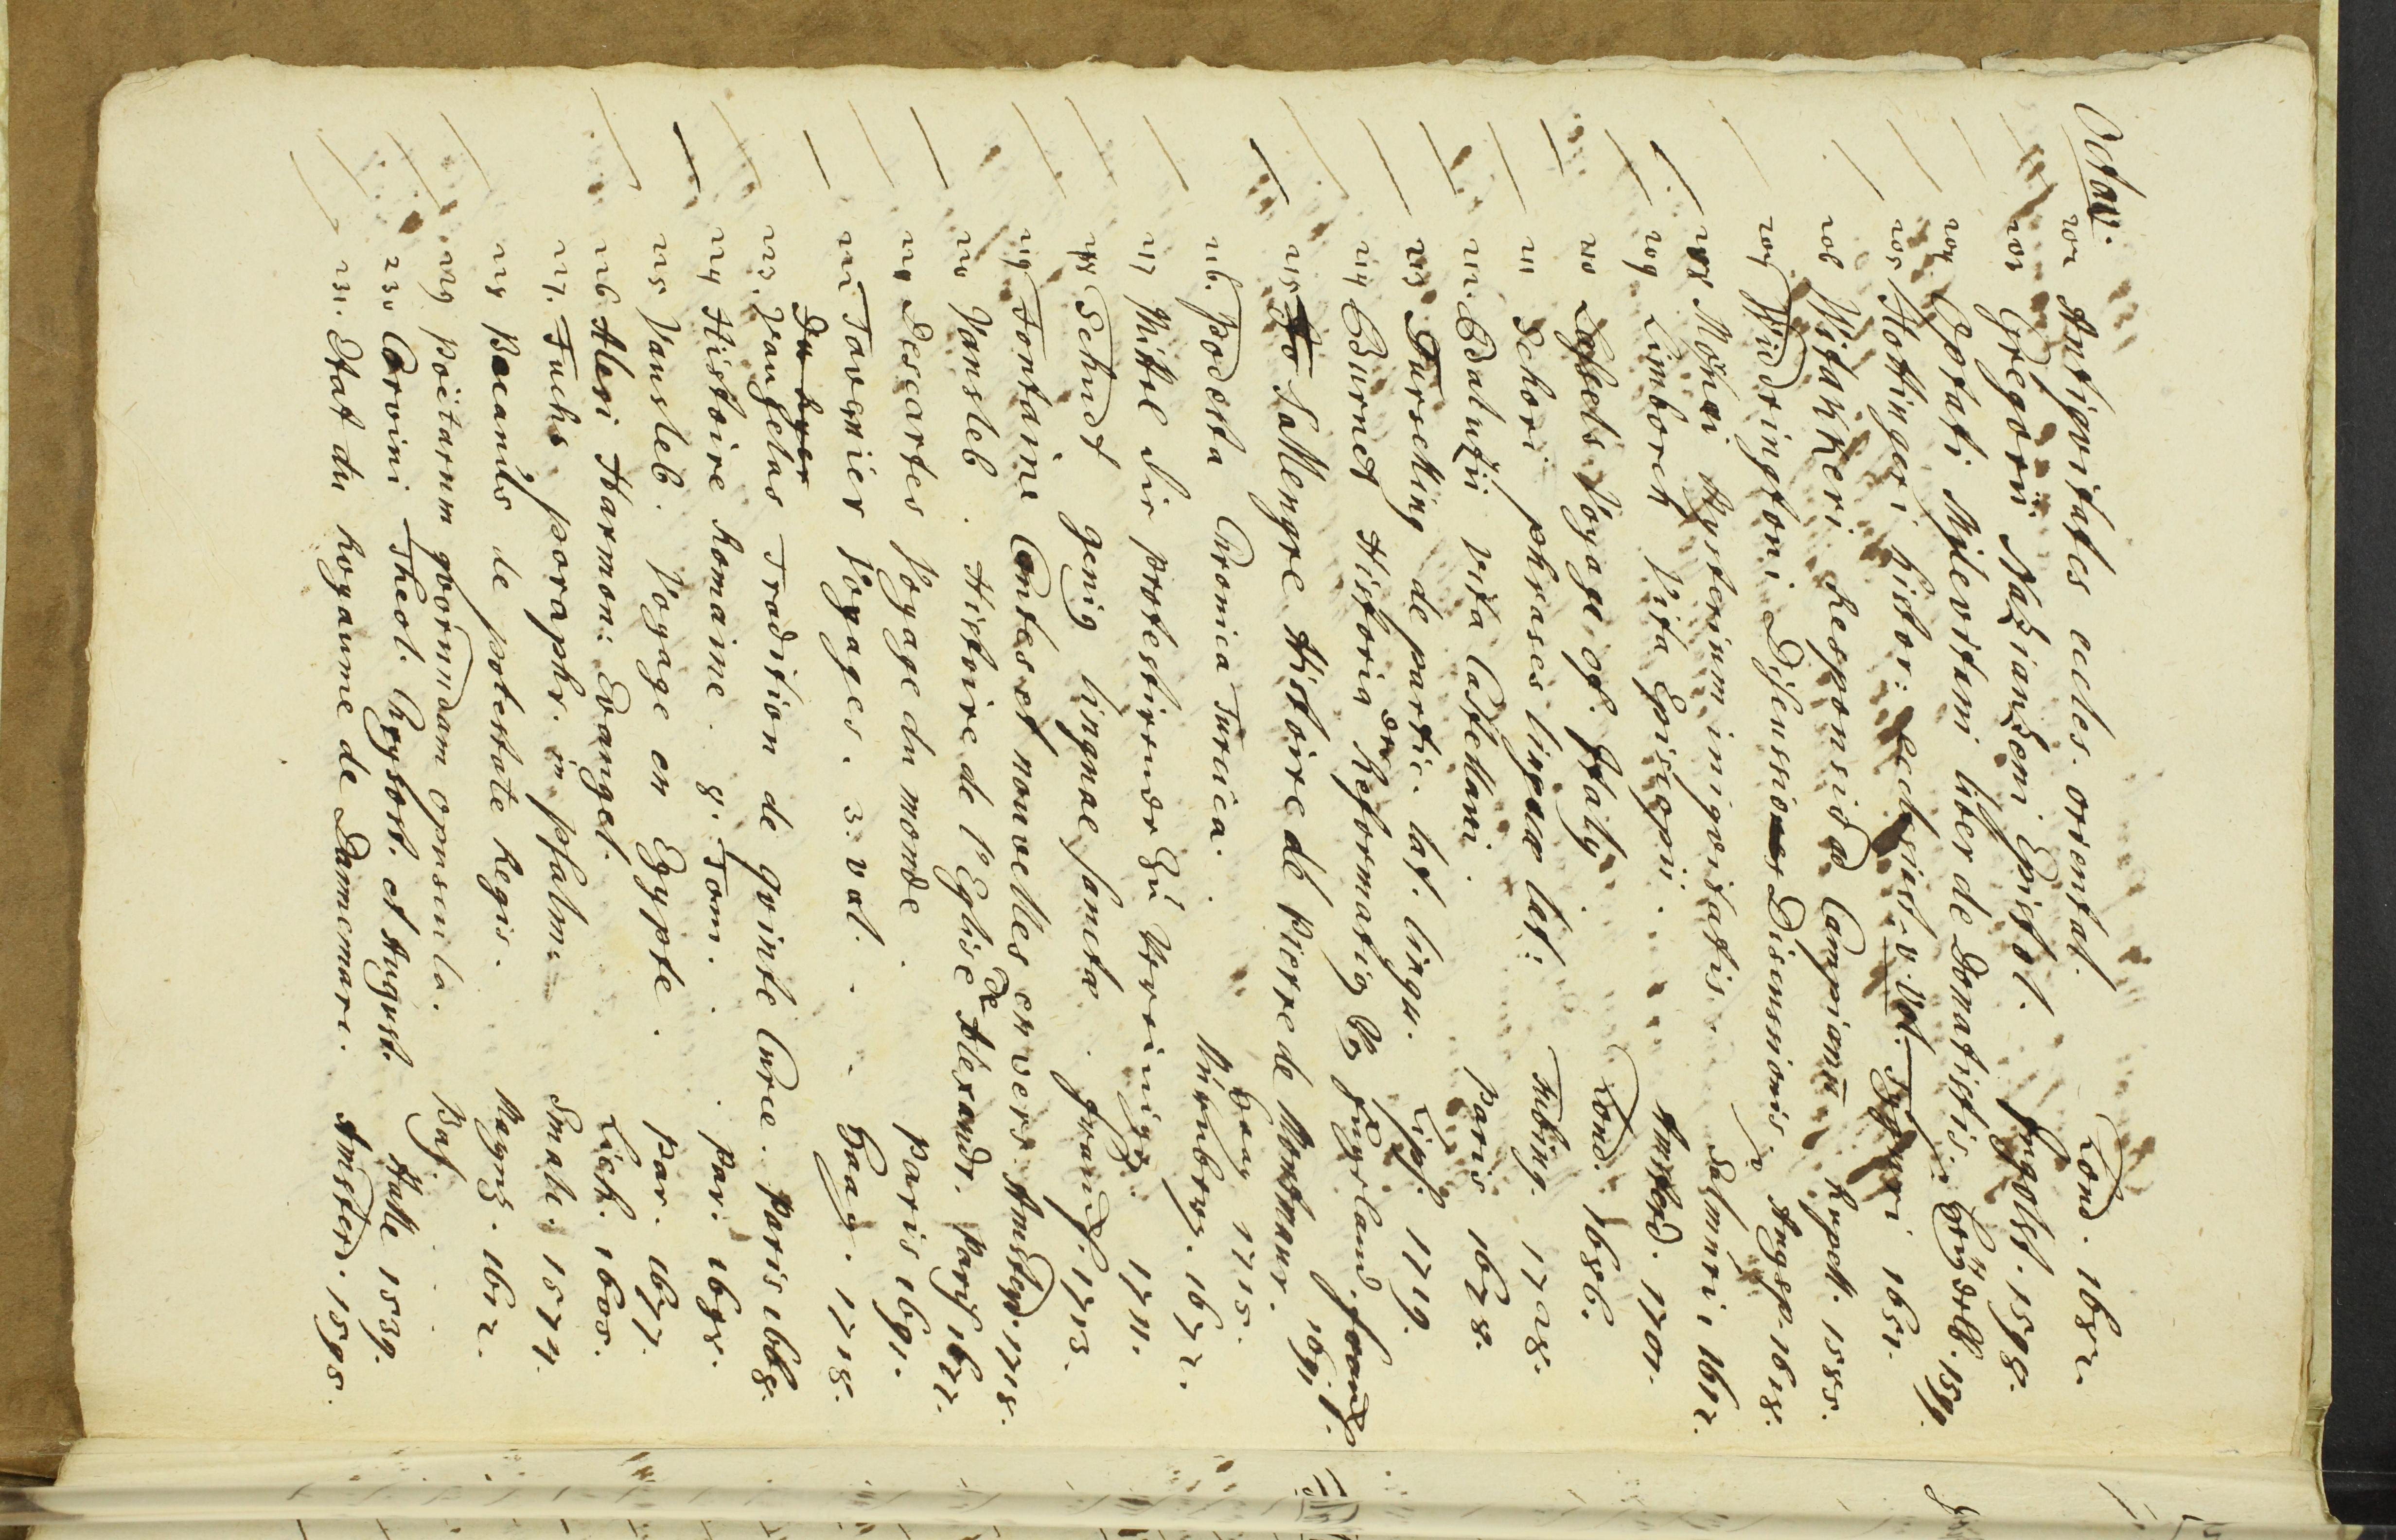 Octav.
202 Antiqvitates eccles. oriental. Lond. 1682.
203 Gregorii Nazianzeni Epistol. Ingolst. 1598.
204 Optati Milevitani über de Donatistis.
205 Hottingeri histor: Ecclesiast. v. Vol. Tiguri 1651.
206 Witakkeri Responsio ad Campianū 1585.
207 Widdringtoni Discussionis 1618.
208 Mornæi Mysterium iniqvitatis. Salmuri: 1612.
209 Limborch Vita Episcopii. Amsterd. 1701.
210 Lassels Voyage of Italy. Lond. 1686.
211 Schori phrases linguæ lat: Tubing. 1728.
212. Balutzii vita Castellani. Paris 1678.
213 Türselling de partic. lat. lingu. Lips. 1719.
214 Burnet Historia der Reformatig England.
215 Sallengre Histoire de Pierre de Montmaur. Haag 1715.
216. Podesta Cronica Turcica. Nürnberg. 1672.
217 Mittel die protestirender zu Vereinigz. 1711.
218 Schudt genig linguae sancta. francf. 1713.
219 Fontaine Contes et nouvelles en vers. Amsterd. 1718.
220 Vansleb. Histoire de l'Eglise de Alexandr. Paris 1677.
221 Descartes Voyage du monde. Paris 1691.
222 Tavernier Voyages. 3. vol. Haag. 1718.
223. Vaugelas Tradition de Qvinte Curce. Paris 1668.
224 Histoire Romaine. 8. Tom. Par: 1685.
225 Vansleb. Voyage en Egypte. Par. 1677.
226 Alesi Harmon: Evangel.
227. Fuchs paraphr. in Psalm. 1574.
228 Becanus de potestate Regis. Magnz. 1612.
229 Poëtarum qvorundam opuscula. Bas.
230 Corvini Theol. Chrysost. et August. Halle 1539.
231. Etat du Royaume de Dannemarc. Amsterd. 1695.